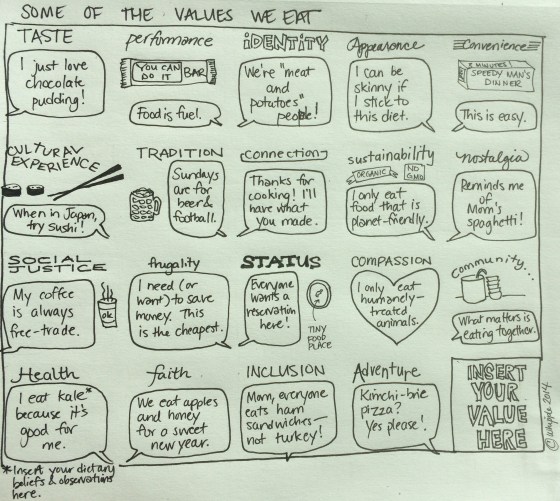 SOME OF THE VALUES WE EAT
TASTE
I just love
chocolate
pudding!
performance
YOU CAN
DO IT
BAR
Food is fuel.
iDENTiTY
We're "meat
and
potatoes"
people!
Appearance
I can be
skinny if
I stick to
this diet.
Convenience
2 MINUTES!
SPEEDY MAN'S
DINNER
This is easy.
CULTURAL
EXPERIENCE
When in Japan,
try sushi!
TRADITION
Sundays
are for
beer &
football.
Connection
Thanks for
cooking! I'll
have what
you made.
sustainability
ORGANIC
NO
GMO
I only eat
food that is
planet-friendly.
nostalgia
Reminds me
of
Mom's
spaghetti!
SOCIAL
JUSTICE
My coffee
is always
free-trade.
frugality
I need (or
want) to save
money. This
is the cheapest.
STATUS
Everyone
wants a
reservation
here!
TINY
FOOD
PLACE
COMPASSION
I only eat
humanely-
treated
animals.
community...
What matters is
eating together.
Health
I eat kale*
because it's
good for
me.
*Insert your dietary
beliefs & observations
here.
faith
We eat apples
and honey
for a sweet
new year.
INCLUSION
Mom, everyone
eats ham
sandwiches—
not turkey!
Adventure
Kimchi-brie
pizza?
Yes please!
INSERT
YOUR
VALUE
HERE